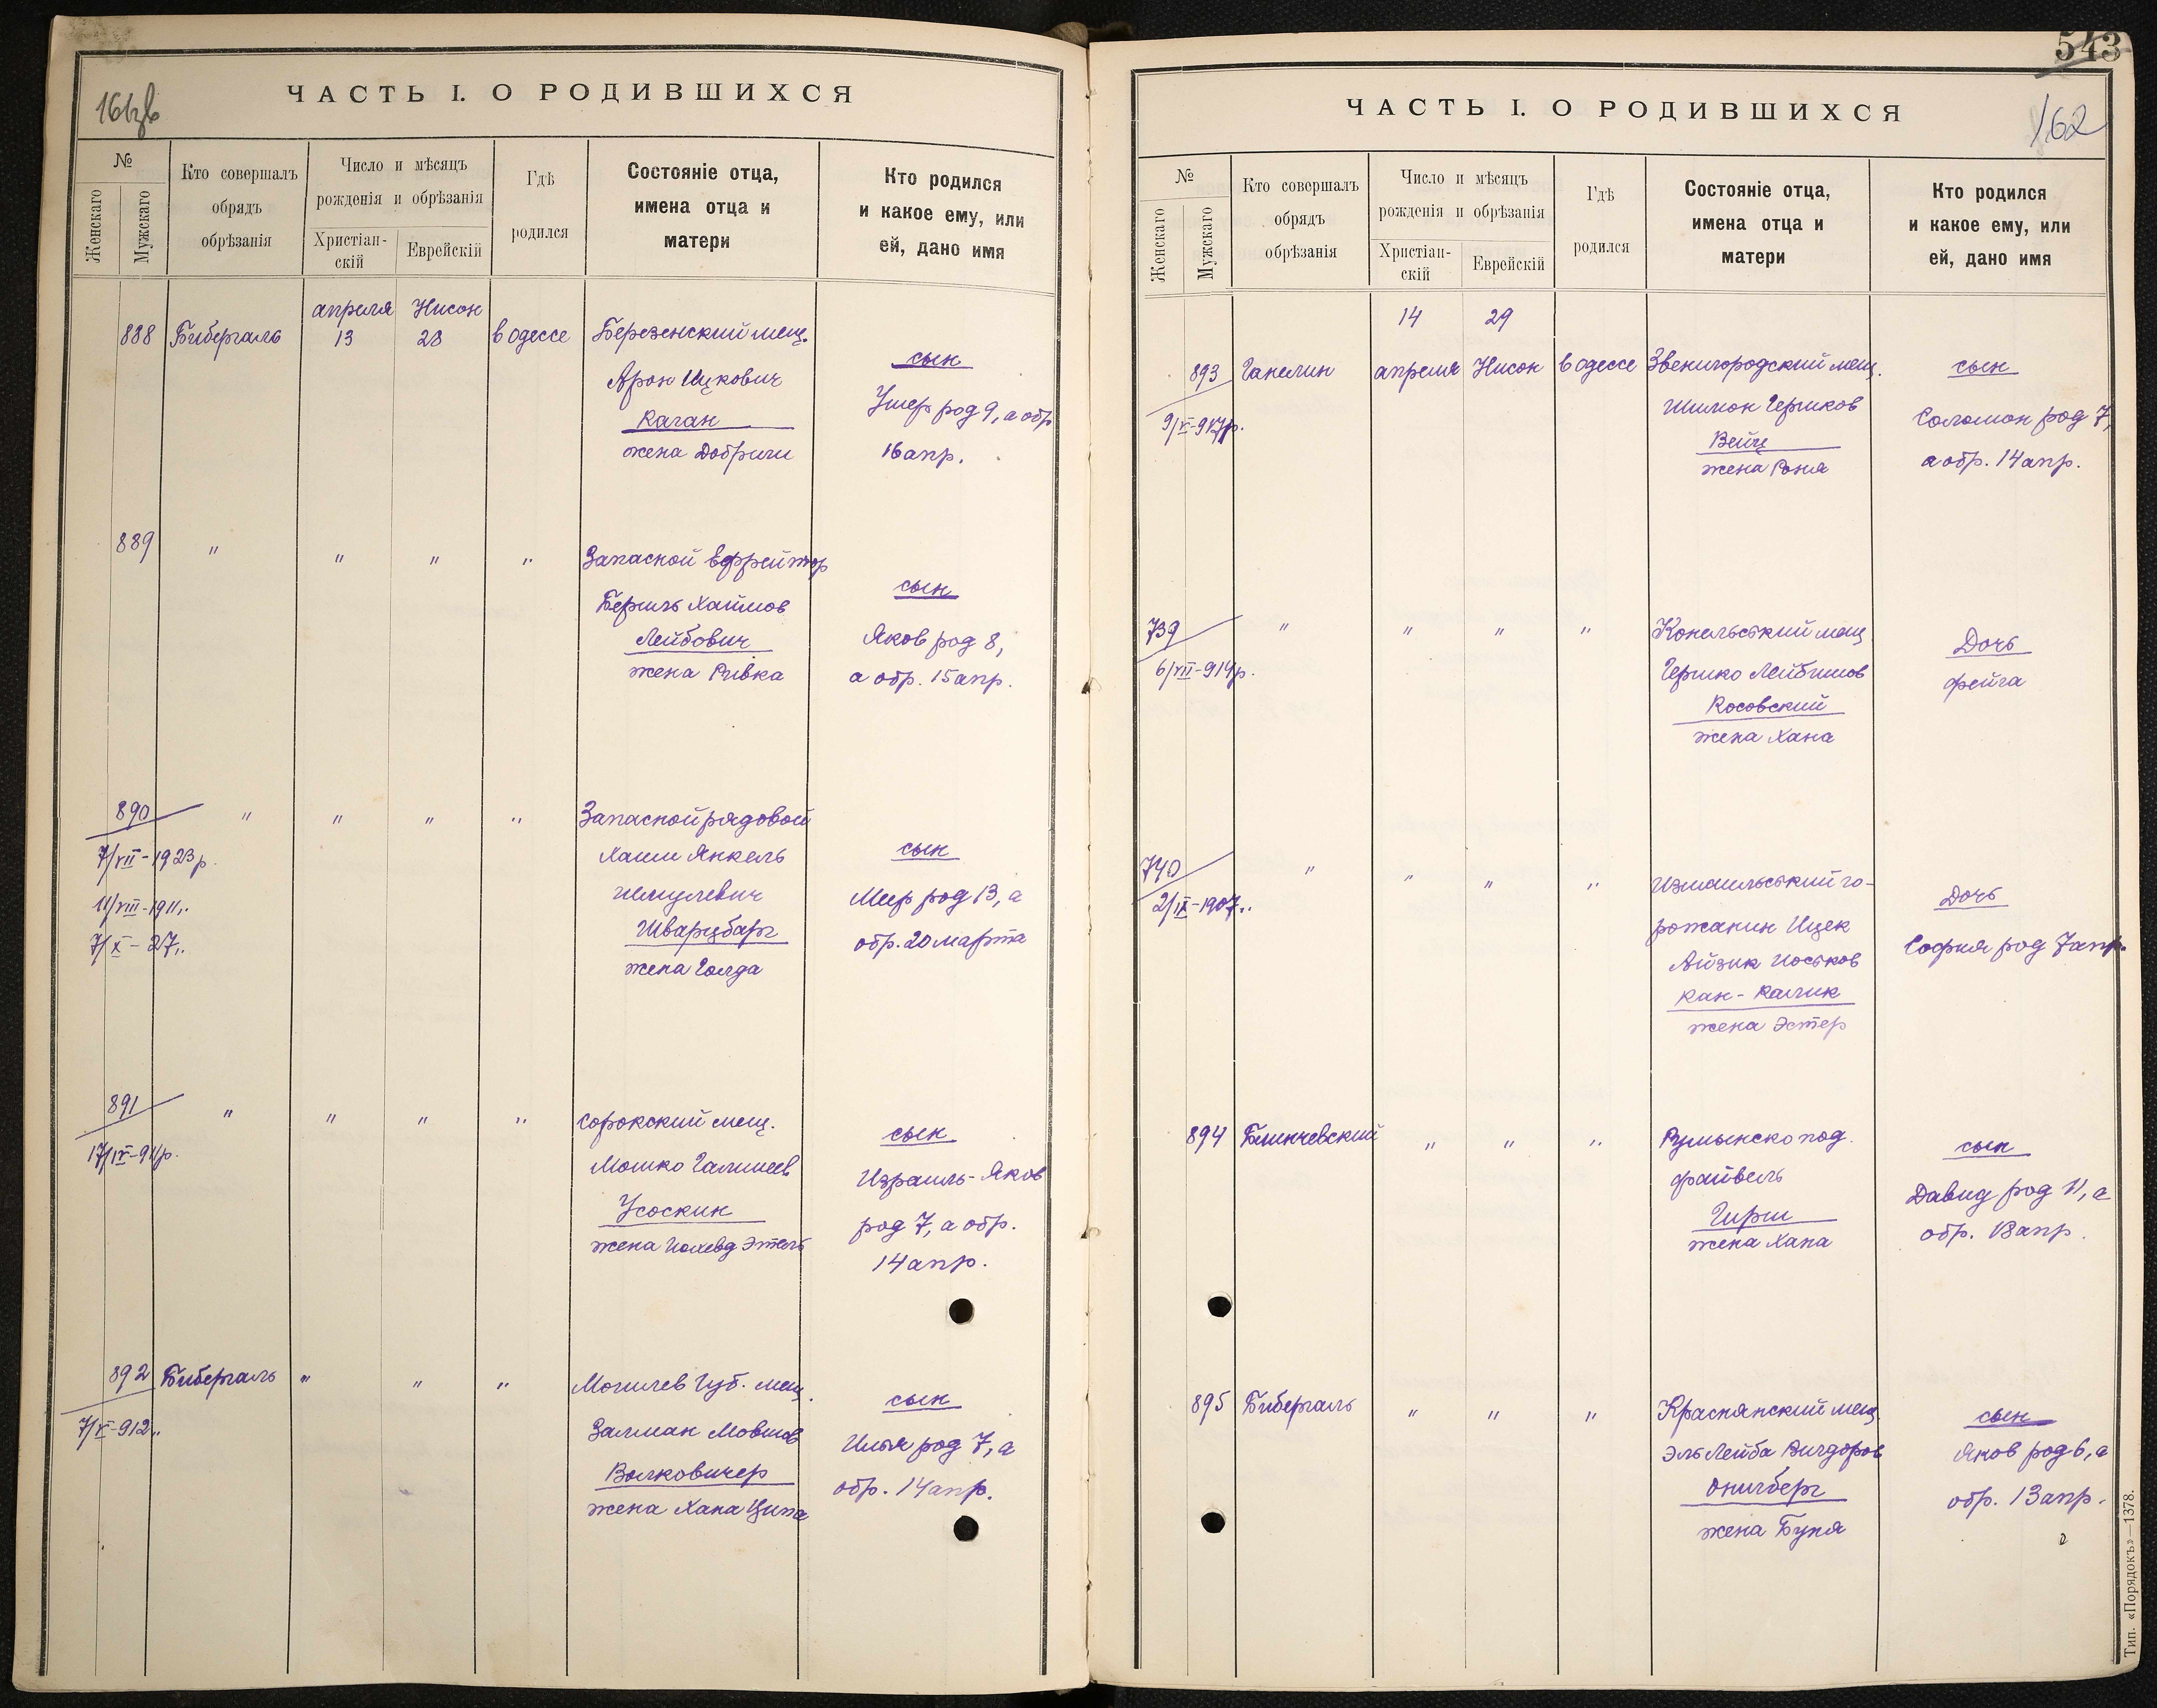 ЧАСТЬ I. О РОДИВШИХСЯ
№
Женскаго
Мужскаго
Кто совершалъ
обрядъ
обрѣзанія
Число и мѣсяцъ
рожденія и обрѣзанія
Христіан-
скій
Еврейскій
Гдѣ
родился
Состояніе отца,
имена отца и
матери
Кто родился
и какое ему, или
ей, дано имя
апреля Нисон
888 Бибергаль 13 28 в Одессе Березенский мещ.
сын
Арон Ицкович
Каган
Ушер род 9, а обр
жена Добриш
16 апр.
889 " " " " Запасной ефрейтор
сын
Бериль Хаимов
Лейбович
Яков род 8,
жена Ривка
а обр. 15 апр.
890 " " " " Запасной рядовой
7/VII-1923 р.
Хаим Янкель
сын
11/VIII-1911 "
Шмулевич
Меер род 13, а
7/X-27 "
Шварцбарг
обр. 20 марта
жена Голда
891 " " " " Сорокский мещ.
сын
17/IX-911 р.
Мошко
Израиль-Яков
Усоскин
род 7, а обр.
жена Иохевед Этель
14 апр.
892 Бибергаль " " " Могилев Губ. мещ.
сын
7/V-912 "
Залман Мовшов
Илья род 7, а
Волковичер
обр. 14 апр.
жена Хана Ципа
543
ЧАСТЬ I. О РОДИВШИХСЯ
162
№
Женскаго
Мужскаго
Кто совершалъ
обрядъ
обрѣзанія
Число и мѣсяцъ
рожденія и обрѣзанія
Христіан-
скій
Еврейскій
Гдѣ
родился
Состояніе отца,
имена отца и
матери
Кто родился
и какое ему, или
ей, дано имя
14 29
893 Ганелин апреля Нисон в Одессе Звенигородский мещ. сын
Шимон Гершков
Соломон род 7,
Вейц
жена Роня
а обр. 14 апр.
739 " " " " Конельсткий мещ
Дочь
6/VII-914 р.
Гершко Лейбишов
Фейга
Косовский
жена Хана
740 " " " " Измаильсткий го-
Дочь
2/IX-1907 "
рожанин Ицек
София род 7 апр.
Айзик Иоськов
Кан-Калик
жена Эстер
894 Блинчевский " " " Румынско под.
сын
Файвель
Давид род 11, а
Гирш
обр. 18 апр.
жена Хана
895 Бибергаль " " " Краснянский мещ.
сын
Эль Лейба
Яков род 6, а
жена Буня
обр. 13 апр.
Тип. «Порядокъ»—1378.